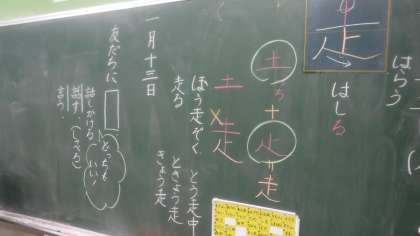 はらう
走
はしる
土
+
止
=
走
土
×
走
ほう走ぞく
とう走中
走る
ときょう走
きょう走
一月十三日
友だちに
どっちも
いい!
話しかける
話す.(しゃべる)
言う.